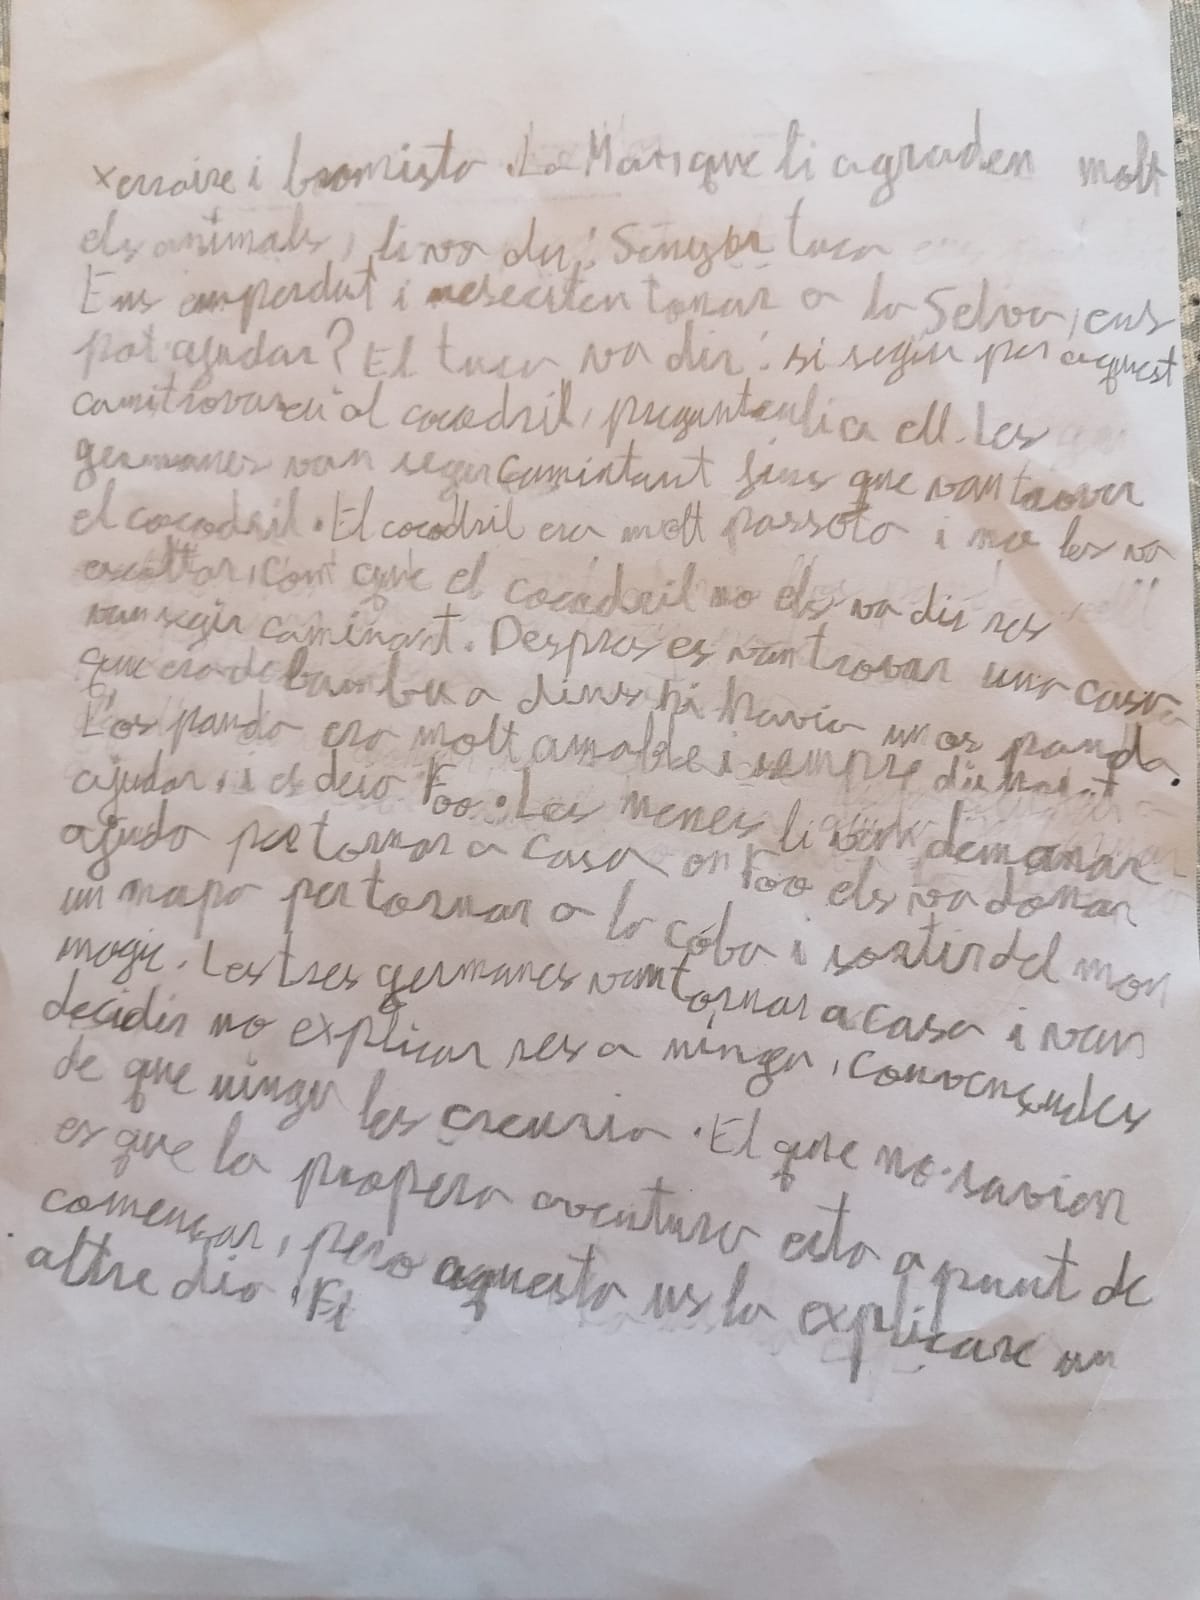 xerraire i bromista. La Mar, que li agraden molt
els animals, li va dir: Senyor tuca
Ens emperdut i neseciten tonar a la Selva, ens
pot ajudar? El tuca va dir: si seguiu per aquest
camitrovareu al cocodril, preguntenli a ell. Les
germanes van seguir camintant fins que van trovar
el cocodril. El cocodril era molt passota i no les va
escoltar, com que el cocodril no els va dir res
van seguir caminant. Despres es van trovar una casa
que era de bambu a dins hi havia un os panda.
L'os panda era molt amable i sempre
ajudar, i es deia Foo. Les nenes li van demanar
ajuda per tornar a casa on Foo els va donar
un mapa per tornar a la coba i sortir del mon
magic. Les tres germanes van tornar a casa i van
decidir no explicar res a ningu, convençudes
de que ningu les creuria. El que no savian
es que la propera aventura esta apunt de
començar, pero aquesta us la explicare un
altre dia. Fi